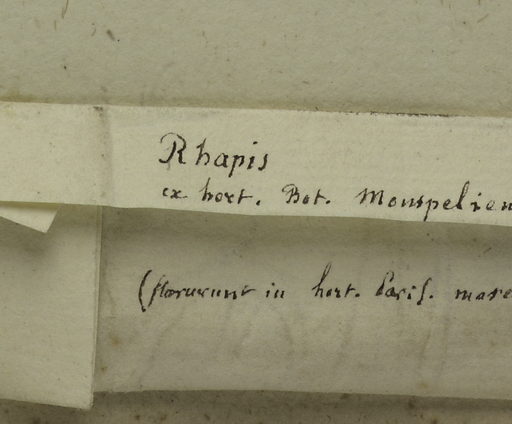 Rhapis
ex hort. Bot. Monspelien
(floruerunt in hort. Paris. mar